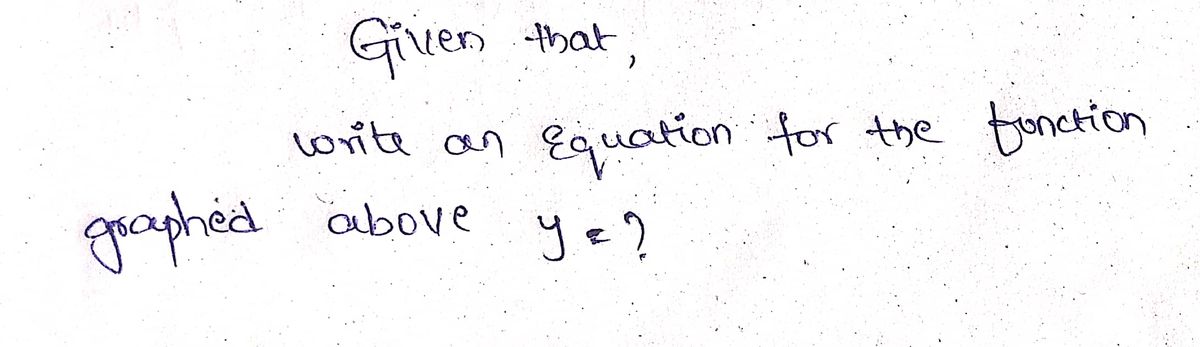 Given that,
write an Equation for the function
graphed above y = ?